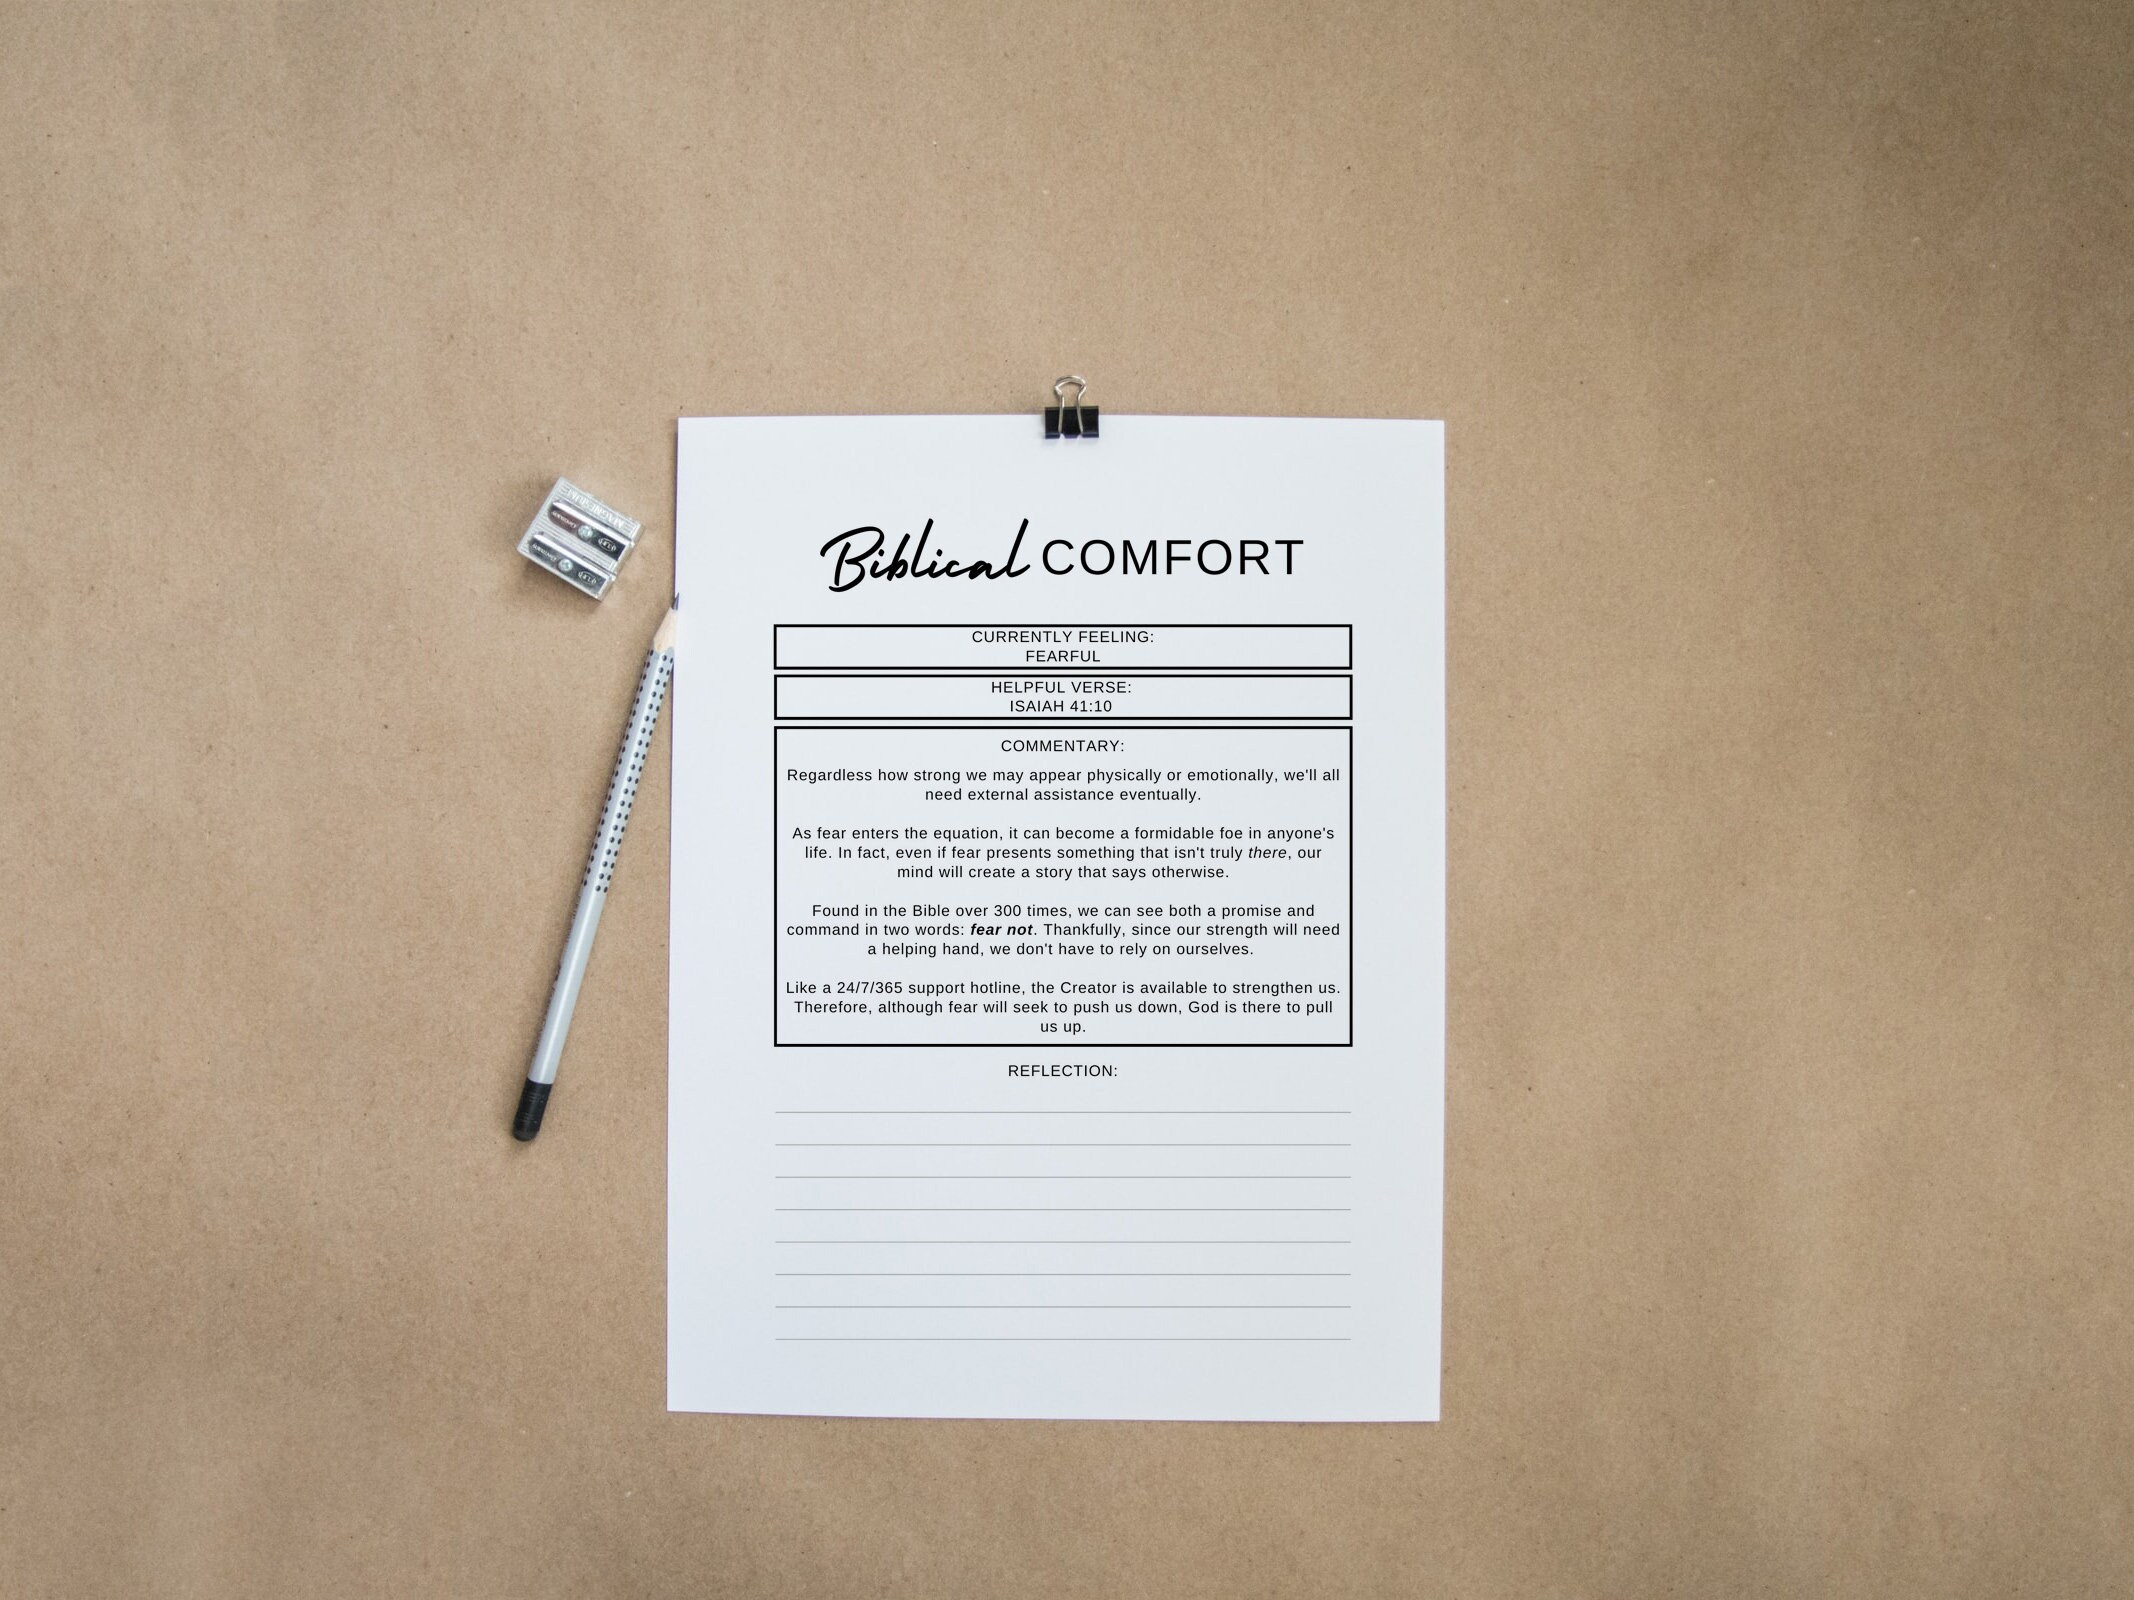 Biblical COMFORT
CURRENTLY FEELING:
FEARFUL
HELPFUL VERSE:
ISAIAH 41:10
COMMENTARY:
Regardless how strong we may appear physically or emotionally, we'll all
need external assistance eventually.
As fear enters the equation, it can become a formidable foe in anyone's
life. In fact, even if fear presents something that isn't truly there, our
mind will create a story that says otherwise.
Found in the Bible over 300 times, we can see both a promise and
command in two words: fear not. Thankfully, since our strength will need
a helping hand, we don't have to rely on ourselves.
Like a 24/7/365 support hotline, the Creator is available to strengthen us.
Therefore, although fear will seek to push us down, God is there to pull
us up.
REFLECTION: